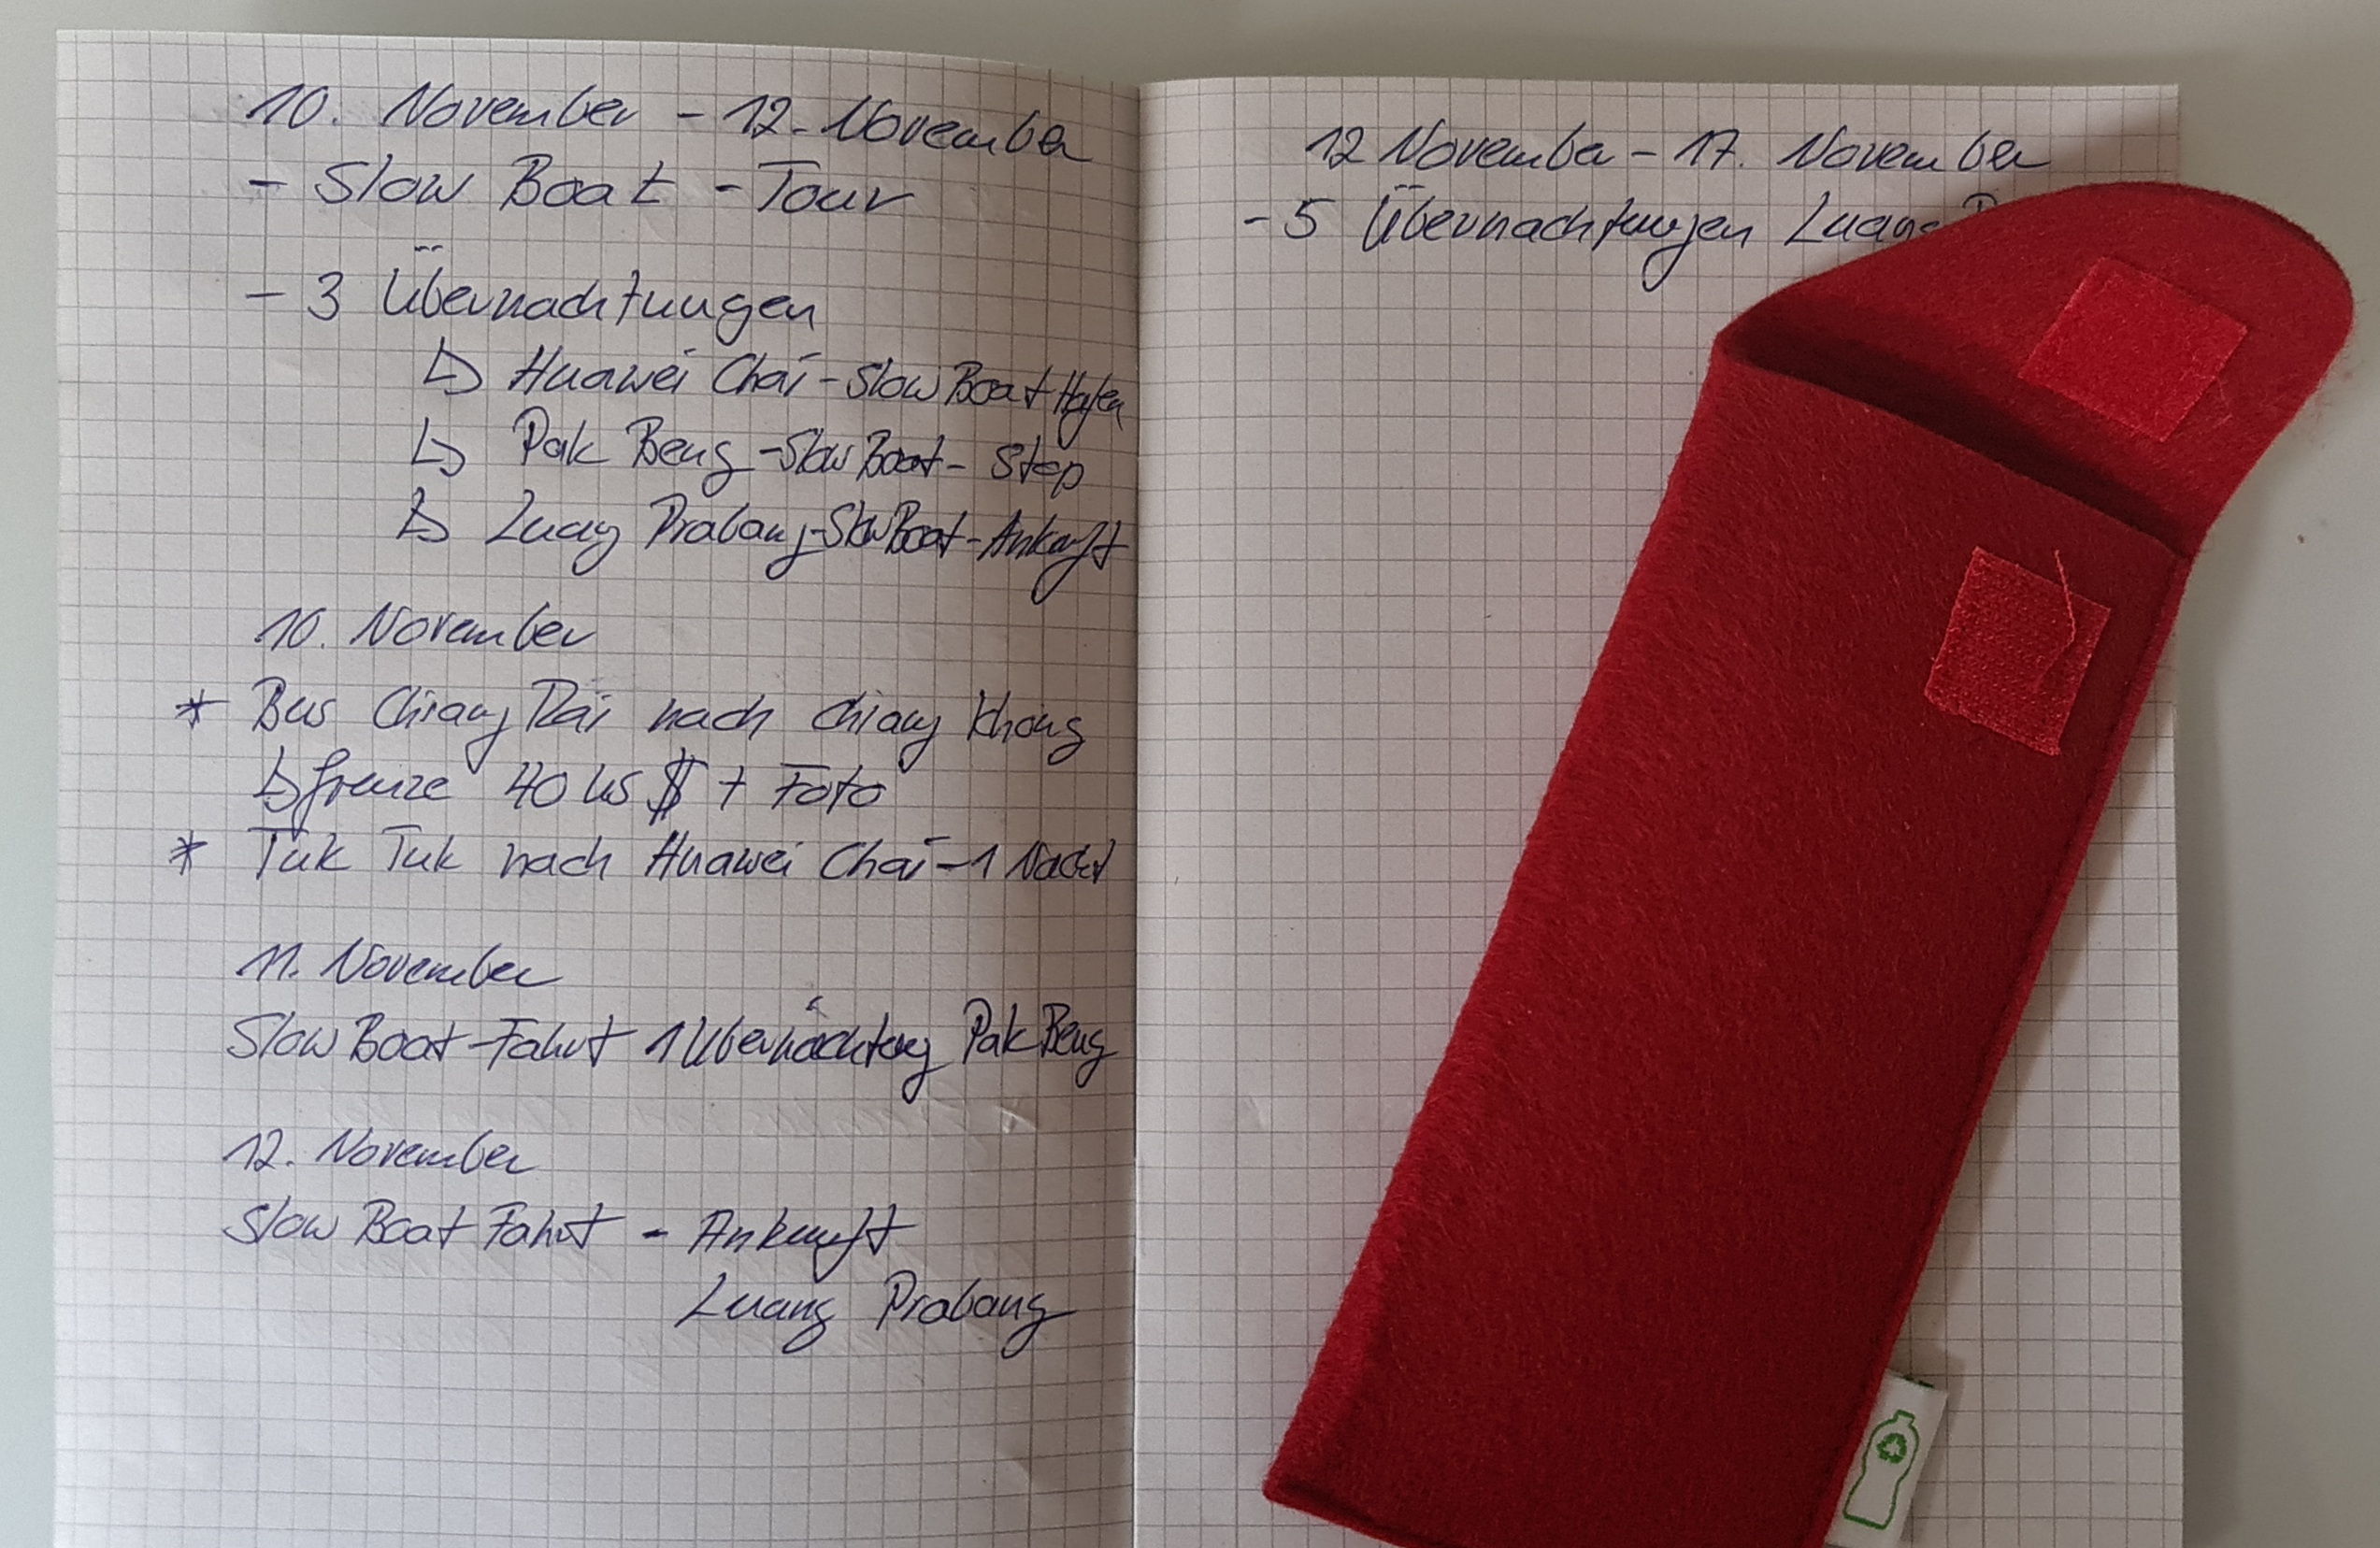 10. November - 12. November
- Slow Boat - Tour
- 3 Übernachtungen
↳ Huawei Chai - Slow Boat Hafen
↳ Pak Beng - Slow Boat - Stop
↳ Luang Prabang - Slow Boat - Ankunft
10. November
* Bus Chiang Rai nach Chiang Khong
↳ Grenze 40 US $ + Foto
* Tuk Tuk nach Huawei Chai - 1 Nacht
11. November
Slow Boat - Fahrt 1 Übernachtung Pak Beng
12. November
Slow Boat Fahrt - Ankunft
Luang Prabang
12 November - 17. November
- 5 Übernachtungen Luang